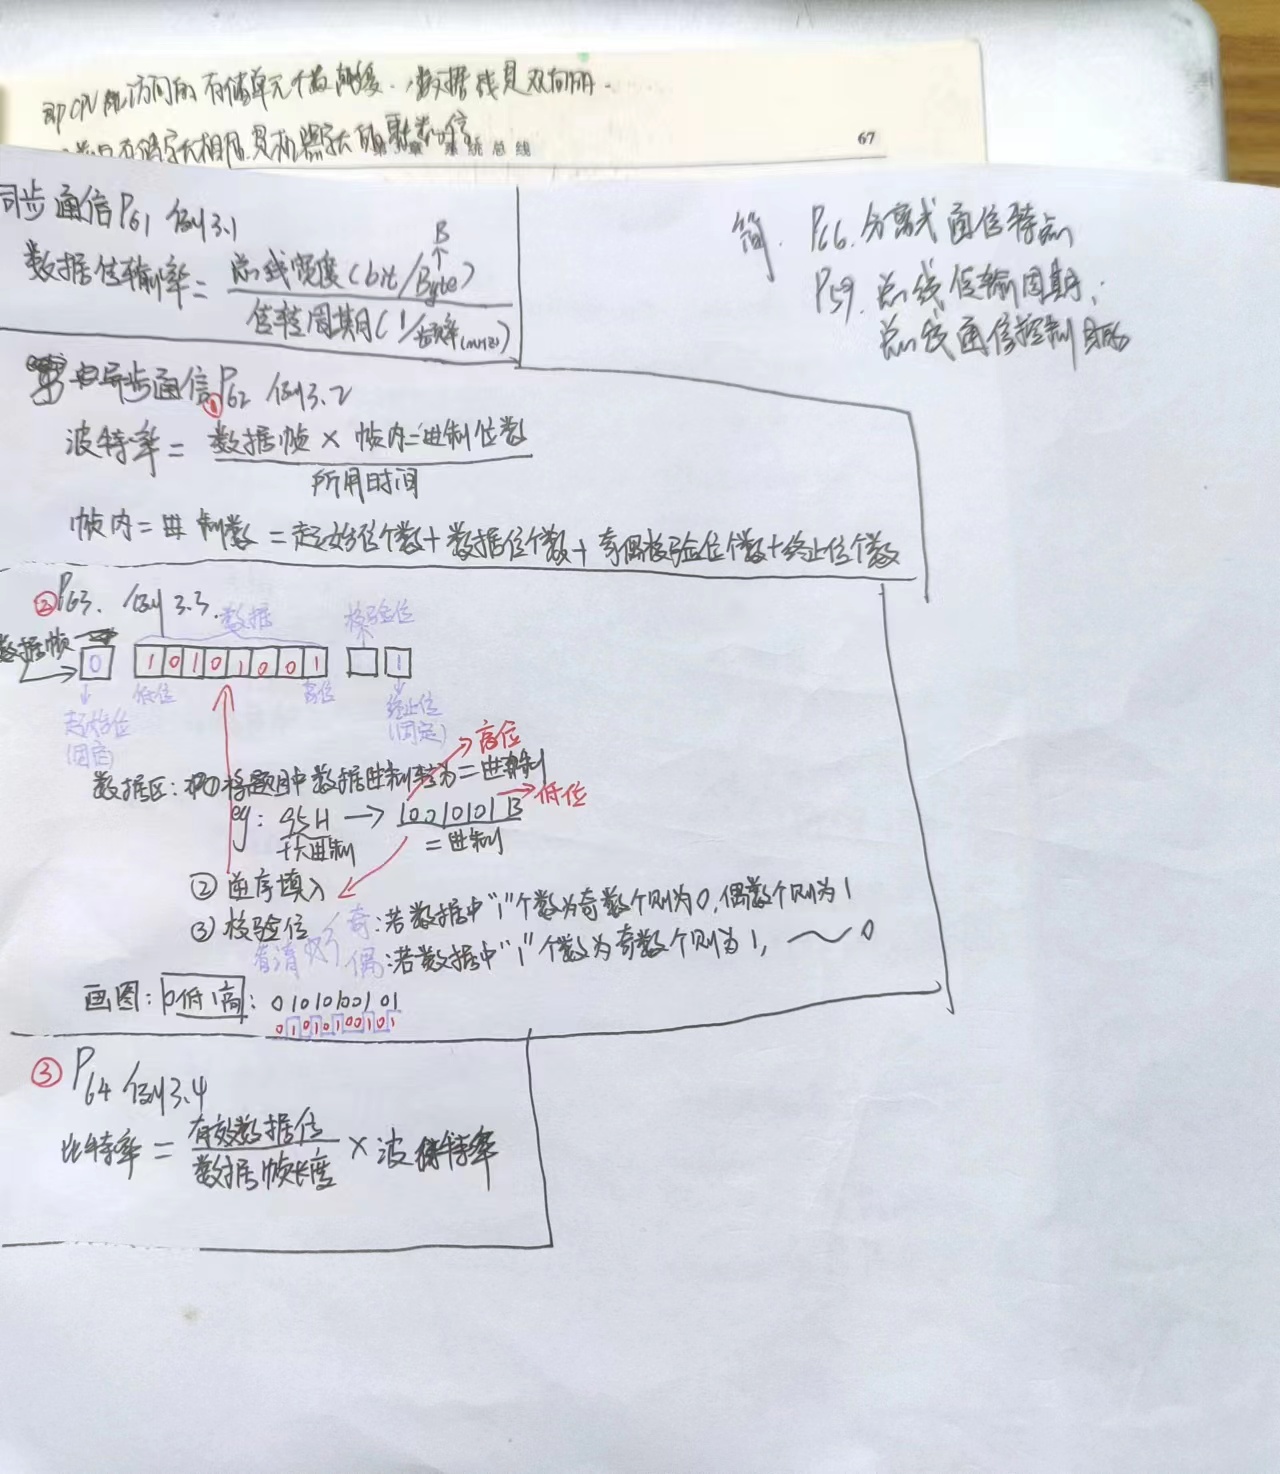 即CPU能访问的存储单元个数有关. 数据线是双向的.
系统总线
67
同步通信P61 例3.1
数据传输率 = 总线宽度(bit/Byte) → B
传输周期(1/频率(MHz))
简. P66.分离式通信特点
P59.总线传输周期,
总线通信控制目的
异步通信P62 例3.2
①
波特率 = 数据帧 × 帧内二进制位数
所用时间
帧内二进制数 = 起始位个数+数据位个数+奇偶校验位个数+终止位个数
②P63. 例3.3.
数据 校验位
数据帧 0 1 0 1 0 1 0 0 1 1
低位 高位
起始位(固定) 终止位(固定)
高位
数据区:①将题目中数据进制转为二进制
低位
eg: 95H → 10010101B
十六进制 二进制
② 逆序填入
③ 校验位 奇:若数据中"1"个数为奇数个则为0,偶数个则为1
看清 偶:若数据中"1"个数为奇数个则为1, ～ 0
画图: 0低1高: 01010100101
0 1 0 1 0 1 0 0 1 0 1
③ P64 例3.4
比特率 = 有效数据位 × 波特率
数据帧长度